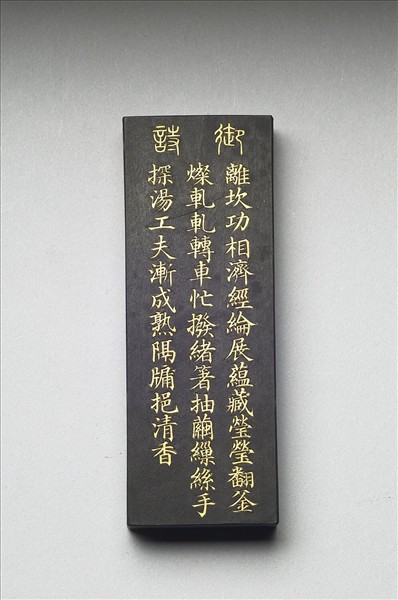 御詩
離坎功相濟經綸展蘊藏瑩瑩翻釜
燦軋軋轉車忙撥緒箸抽繭繅絲手
探湯工夫漸成熟隅牖挹清香